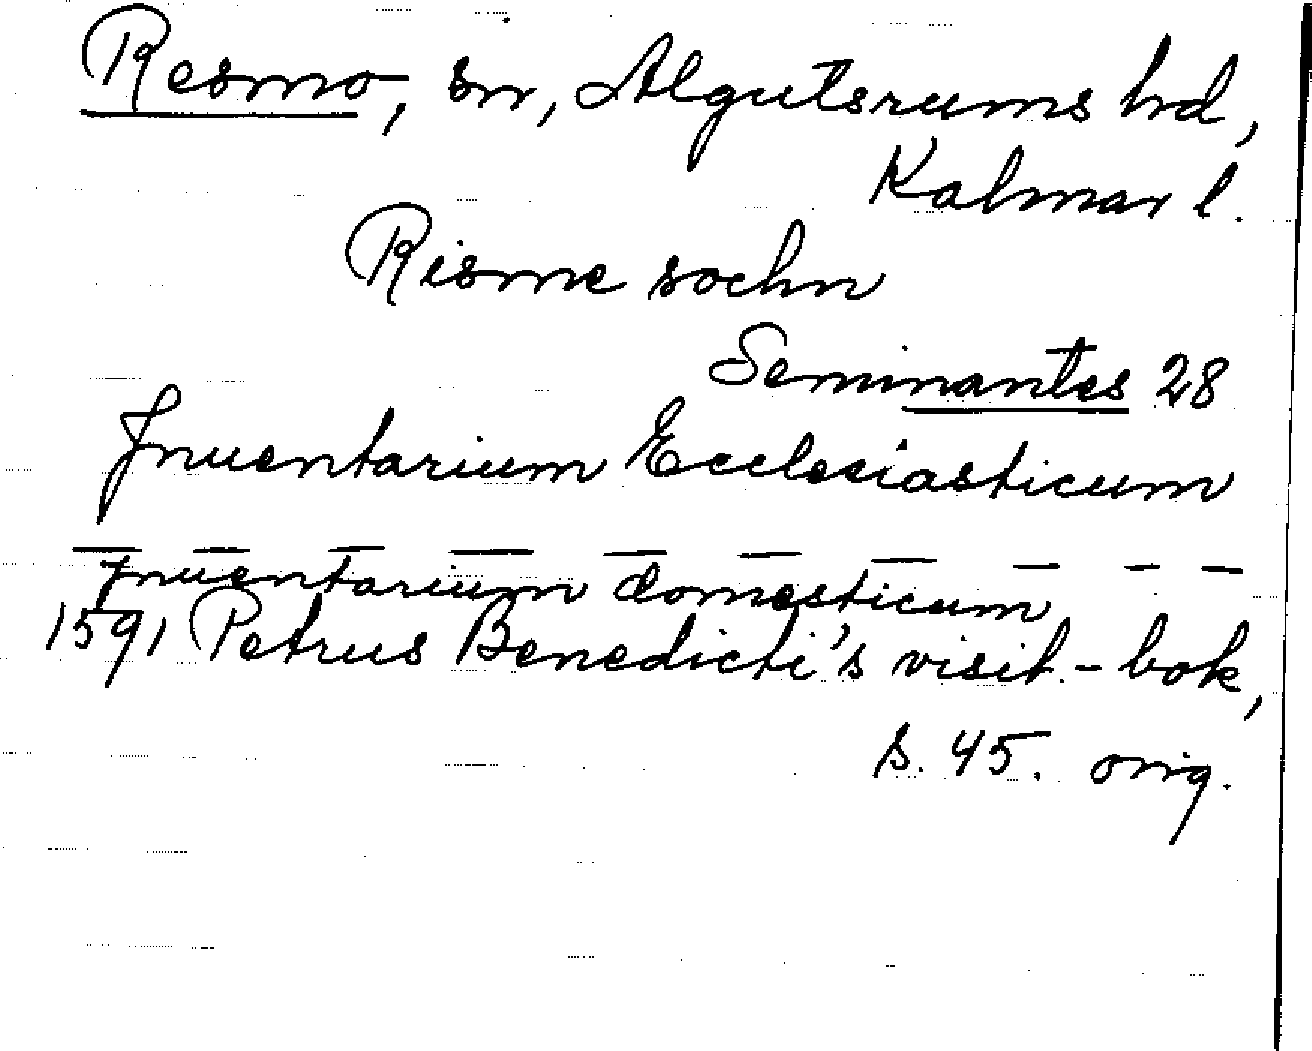 Resmo, sn, Algutsrums hd,
Kalmar l.
Risme sochn
Seminantes 28
Inuentarium Ecclesiasticum
— — — — — — — — — —
Inuentarium domesticum
1591 Petrus Benedicti's visit.-bok,
s. 45. orig.